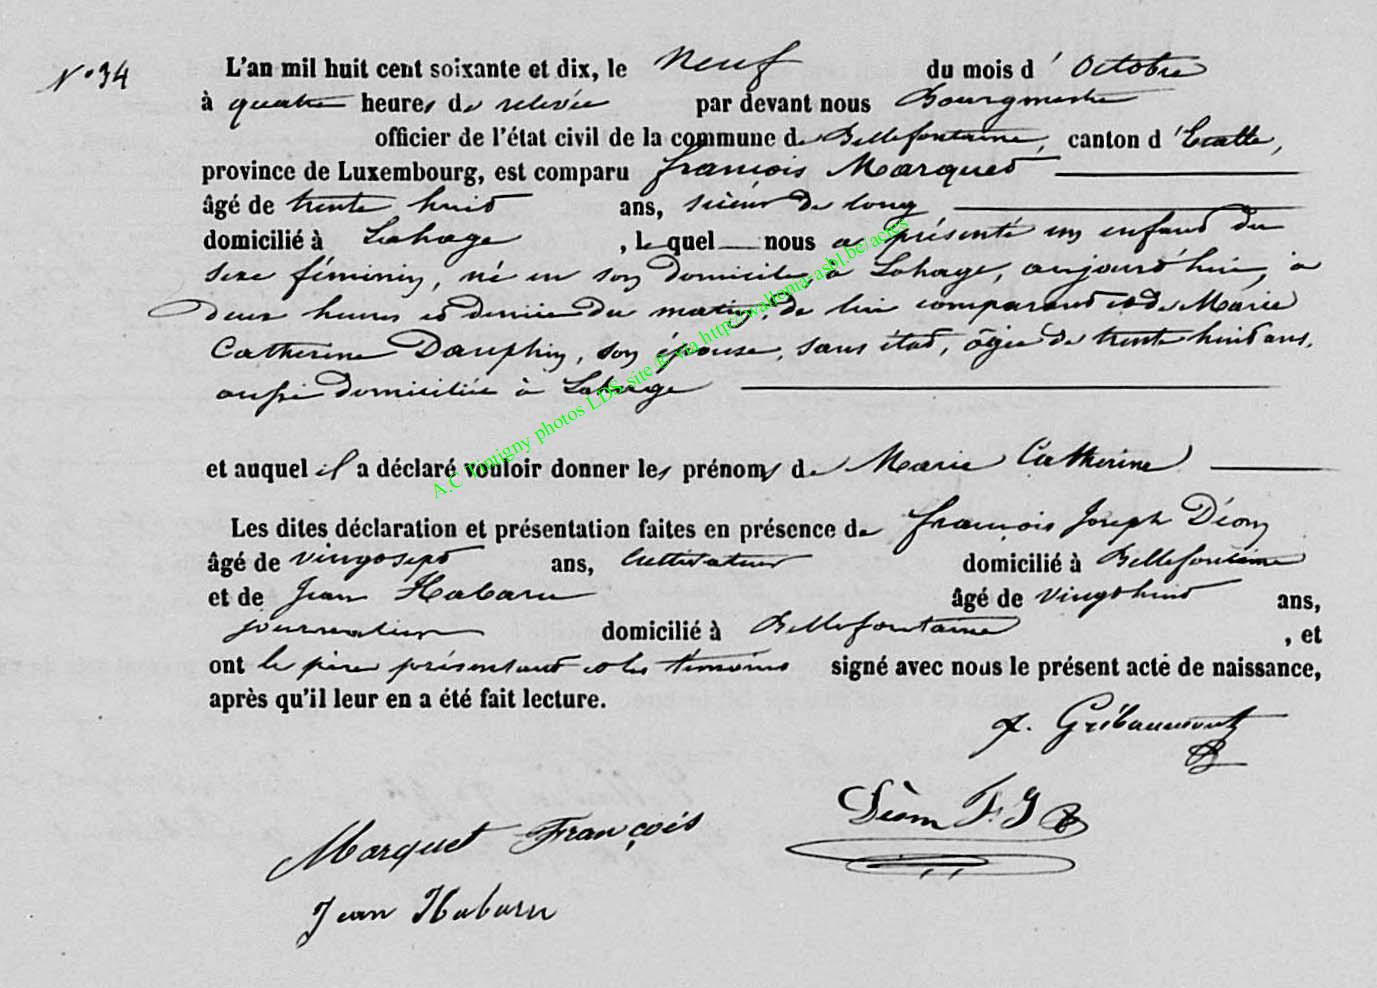 N° 34
L'an mil huit cent soixante et dix, le neuf du mois d' Octobre
à quatre heures de relevée par devant nous Bourgmestre
officier de l'état civil de la commune de Bellefontaine, canton d'Etalle,
province de Luxembourg, est comparu françois Marquet
âgé de trente huit ans, scieur de long
domicilié à Lahage, lequel nous a présenté un enfant du
sexe féminin, né en son domicile à Lahage, aujourd'hui, à
Deux heures et demie du matin, de lui comparant et de Marie
Catherine Dauphin, son épouse, sans état, âgée de trente huit ans,
aussi domiciliée à Lahage
et auquel il a déclaré vouloir donner les prénoms de Marie Catherine
Les dites déclaration et présentation faites en présence de françois Joseph Déom
âgé de vingt sept ans, Cultivateur domicilié à Bellefontaine
et de Jean Habaru âgé de vingt huit ans,
journalier domicilié à Bellefontaine, et
ont le père présentant et les témoins signé avec nous le présent acte de naissance,
après qu'il leur en a été fait lecture.
Gribaumont
Déom F. J
Marquet François
Jean Habaru
A.C Tintigny photos LDS site & via http://wallonia-asbl.be/actes